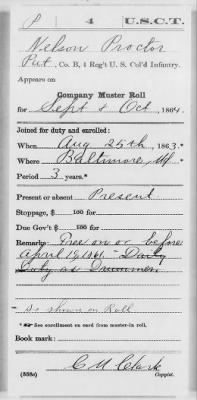 P 4 U.S.C.T.
Nelson Proctor
Pvt, Co. B, 4 Reg't U. S. Col'd Infantry.
Appears on
Company Muster Roll
for Sept & Oct, 1864.
Joined for duty and enrolled:
When Aug 25th, 1863.*
Where Baltimore, Md
Period 3 years.*
Present or absent Present
Stoppage, $ 100 for
Due Gov't $ 100 for
Remarks: Free on or before
April 19, 1861 - Daily
Duty as Drummer.
- as shown on Roll
* See enrollment on card from muster-in roll.
Book mark:
C M Clark
(358c) Copyist.